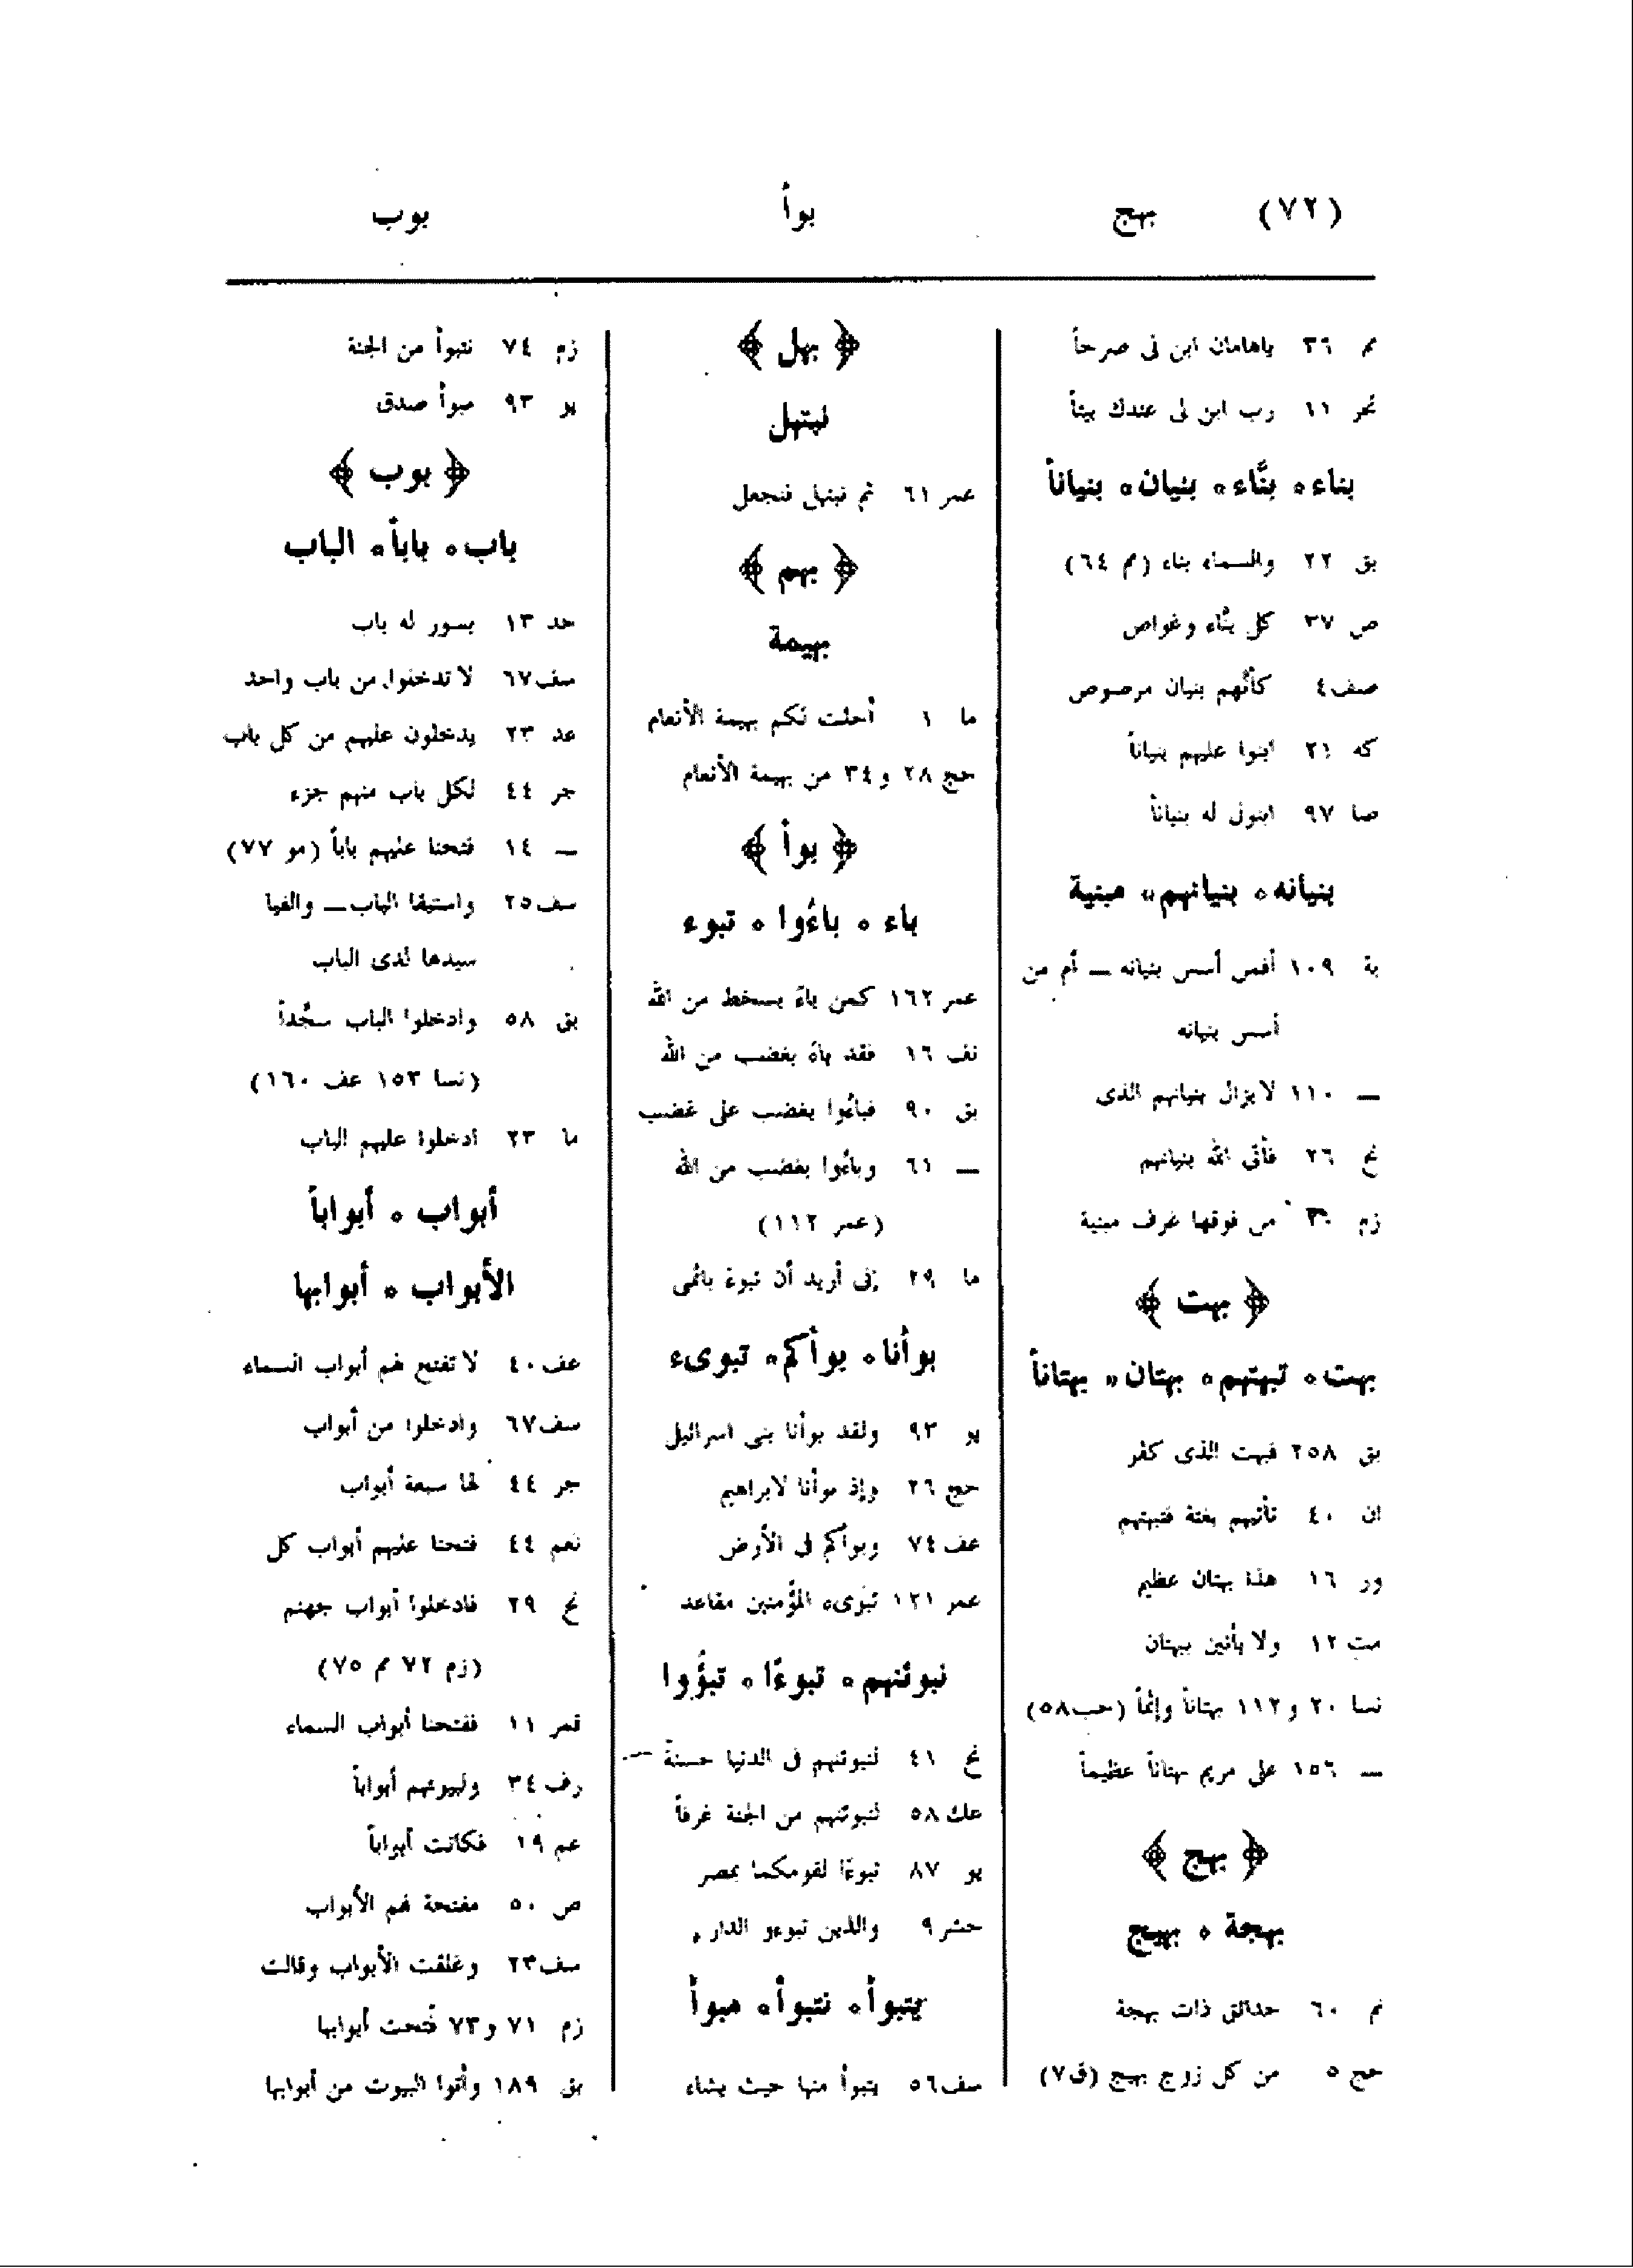 (٧٢) بهج بوأ بوب
مم ٣٦ ياهامان ابن لى صرحاً
تحر ١١ رب ابن لى عندك بيتاً
بناء ٥ بنَّاء ٥ بنيان ٥ بنياناً
بق ٢٢ والسماء بناء (مم ٦٤)
ص ٣٧ كل بنَّاء وغواص
صف ٤ كأنهم بنيان مرصوص
كه ٢١ ابنوا عليهم بنياناً
صا ٩٧ ابنوا له بنياناً
بنيانه ٥ بنيانهم ٥ مبنية
بة ١٠٩ أفمن أسس بنيانه ــ أم من
أسس بنيانه
ــ ١١٠ لا يزال بنيانهم الذى
نح ٢٦ فأتى الله بنيانهم
زم ٢٠ من فوقها غرف مبنية
﴿ بهت ﴾
بهت ٥ تبهتهم ٥ بهتان ٥ بهتاناً
بق ٢٥٨ فبهت الذى كفر
ان ٤٠ تأتيهم بغتة فتبهتهم
ور ١٦ هذا بهتان عظيم
مت ١٢ ولا يأتين ببهتان
نسا ٢٠ و١١٢ بهتاناً وإثماً (حب ٥٨)
ــ ١٥٦ على مريم بهتاناً عظيماً
﴿ بهج ﴾
بهجة ٥ بهيج
نم ٦٠ حدائق ذات بهجة
حج ٥ من كل زوج بهيج (ق ٧)
﴿ بهل ﴾
نبتهل
عمر ٦١ ثم نبتهل فنجعل
﴿ بهم ﴾
بهيمة
ما ١ أحلت لكم بهيمة الأنعام
حج ٢٨ و٣٤ من بهيمة الأنعام
﴿ بوأ ﴾
باء ٥ باءُوا ٥ تبوء
عمر ١٦٢ كمن باءَ بسخط من الله
نف ١٦ فقد باءَ بغضب من الله
بق ٩٠ فباءُوا بغضب على غضب
ــ ٦١ وباءُوا بغضب من الله
(عمر ١١٢)
ما ٢٩ إنى أريد أن تبوءَ بإثمى
بوأنا ٥ بوأكم ٥ تبوىء
يو ٩٣ ولقد بوأنا بنى اسرائيل
حج ٢٦ وإذ بوأنا لابراهيم
عف ٧٤ وبوأكم فى الأرض
عمر ١٢١ تبَوىء المؤمنين مقاعد
نبوئنهم ٥ تبوءَا ٥ تبوُّؤوا
نح ٤١ لنبوئنهم فى الدنيا حسنة
عك ٥٨ لنبوئنهم من الجنة غرفاً
يو ٨٧ تبوءَا لقومكما بمصر
حشر ٩ والذين تبوءو الدار
يتبوأ ٥ نتبوأ ٥ مبوأ
سف ٥٦ يتبوأ منها حيث يشاء
زم ٧٤ نتبوأ من الجنة
يو ٩٣ مبوأ صدق
﴿ بوب ﴾
باب ٥ باباً ٥ الباب
حد ١٣ بسور له باب
سف ٦٧ لا تدخلوا من باب واحد
عد ٢٣ يدخلون عليهم من كل باب
جر ٤٤ لكل باب منهم جزء
ــ ١٤ فتحنا عليهم باباً (مو ٧٧)
سف ٢٥ واستبقا الباب ــ وألفيا
سيدها لدى الباب
بق ٥٨ وادخلوا الباب سجَّداً
(نسا ١٥٣ عف ١٦٠)
ما ٢٣ ادخلوا عليهم الباب
أبواب ٥ أبواباً
الأبواب ٥ أبوابها
عف ٤٠ لا تفتح لهم أبواب السماء
سف ٦٧ وادخلوا من أبواب
جر ٤٤ لها سبعة أبواب
نعم ٤٤ فتحنا عليهم أبواب كل
نح ٢٩ فادخلوا أبواب جهنم
(زم ٧٢ مم ٧٥)
قمر ١١ ففتحنا أبواب السماء
رف ٣٤ ولبيوتهم أبواباً
عم ١٩ فكانت أبواباً
ص ٥٠ مفتحة لهم الأبواب
سف ٢٣ وغلقت الأبواب وقالت
زم ٧١ و٧٣ فُتحت أبوابها
بق ١٨٩ وأتوا البيوت من أبوابها